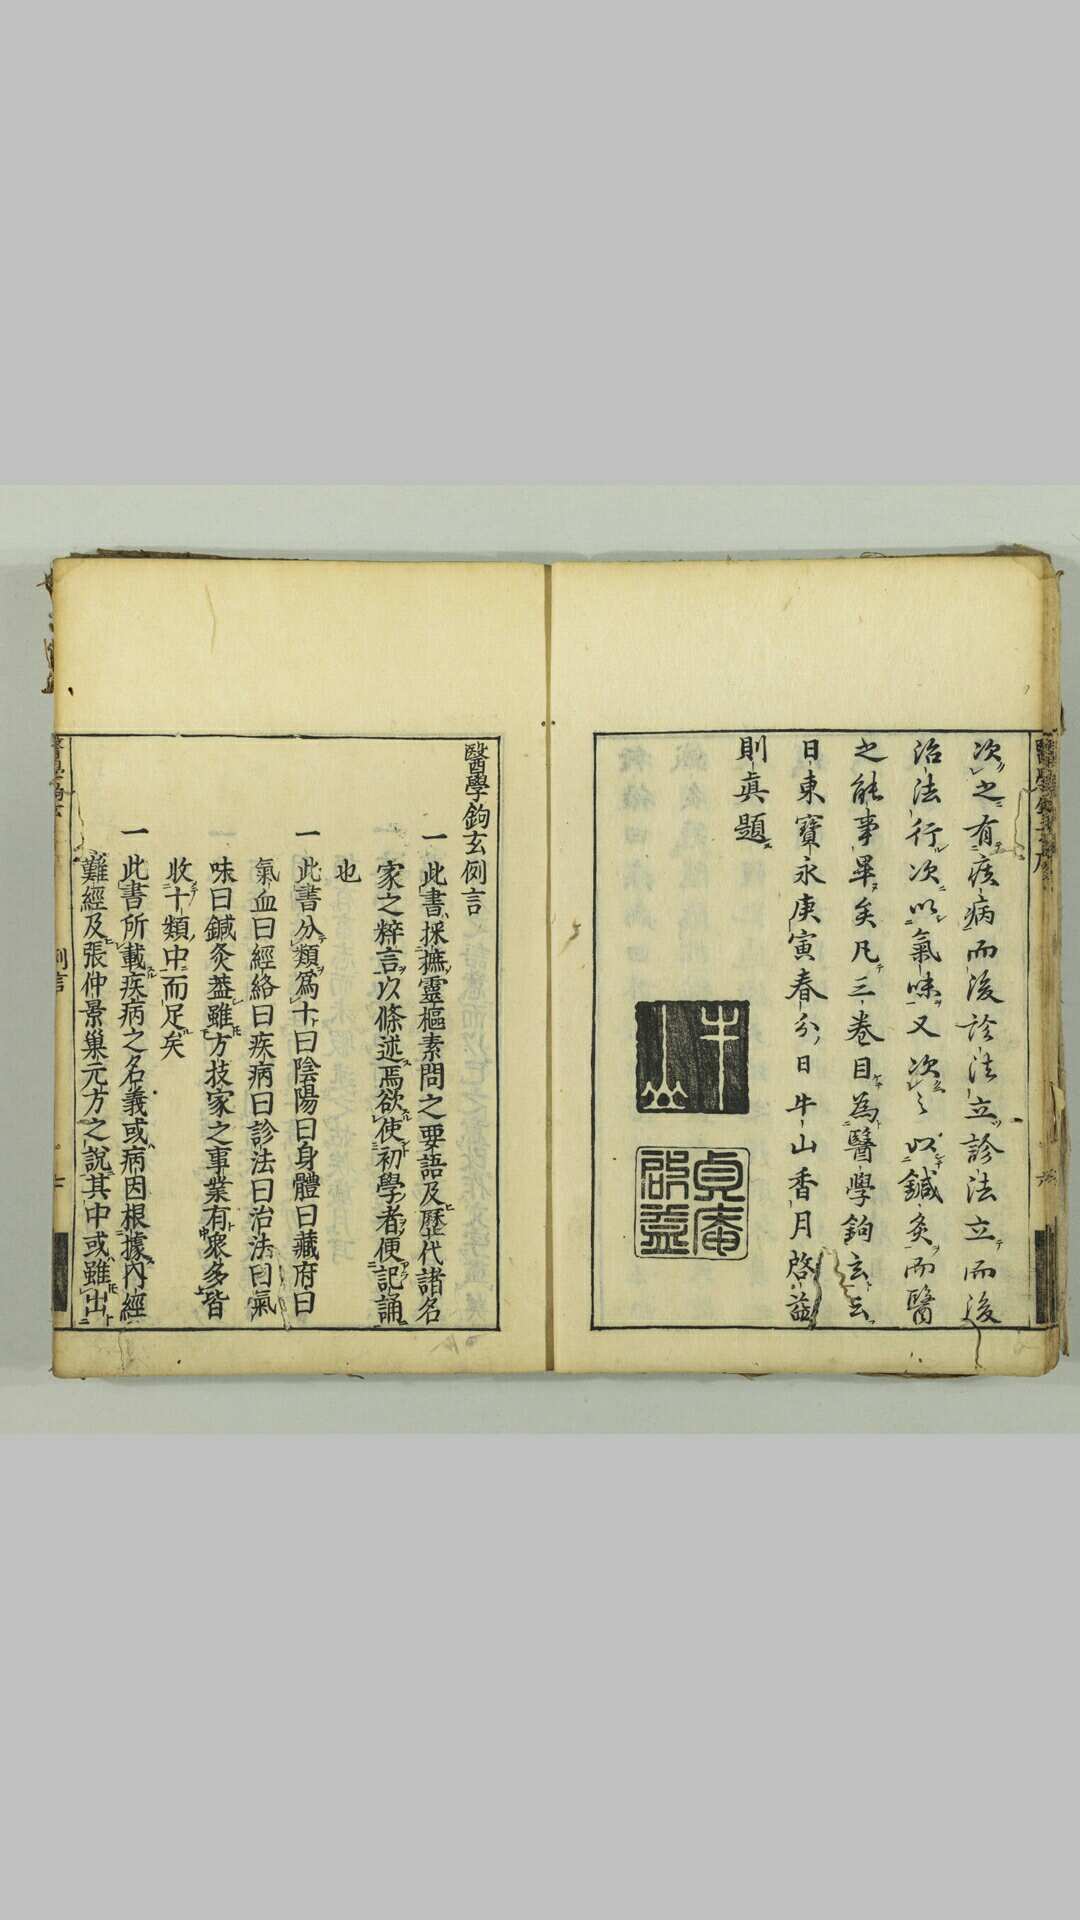 次之有疾病而後診法立診法立而後
治法行次以氣味又次之以鍼灸而醫
之能事畢矣凡三卷目為醫學鉤玄云
日東寶永庚寅春分日牛山香月啓益
則真題
牛山
貞庵
啟益
醫學鉤玄例言
一此書採摭靈樞素問之要語及歷代諸名
家之粹言以條述焉欲使初學者便記誦
也
一此書分類爲十曰陰陽曰身體曰藏府曰
氣血曰經絡曰疾病曰診法曰治法曰氣
味曰鍼灸蓋雖方技家之事業有衆多皆
收十類中而足矣
一此書所載疾病之名義或病因根據内經
難經及張仲景巢元方之說其中或雖出
例言